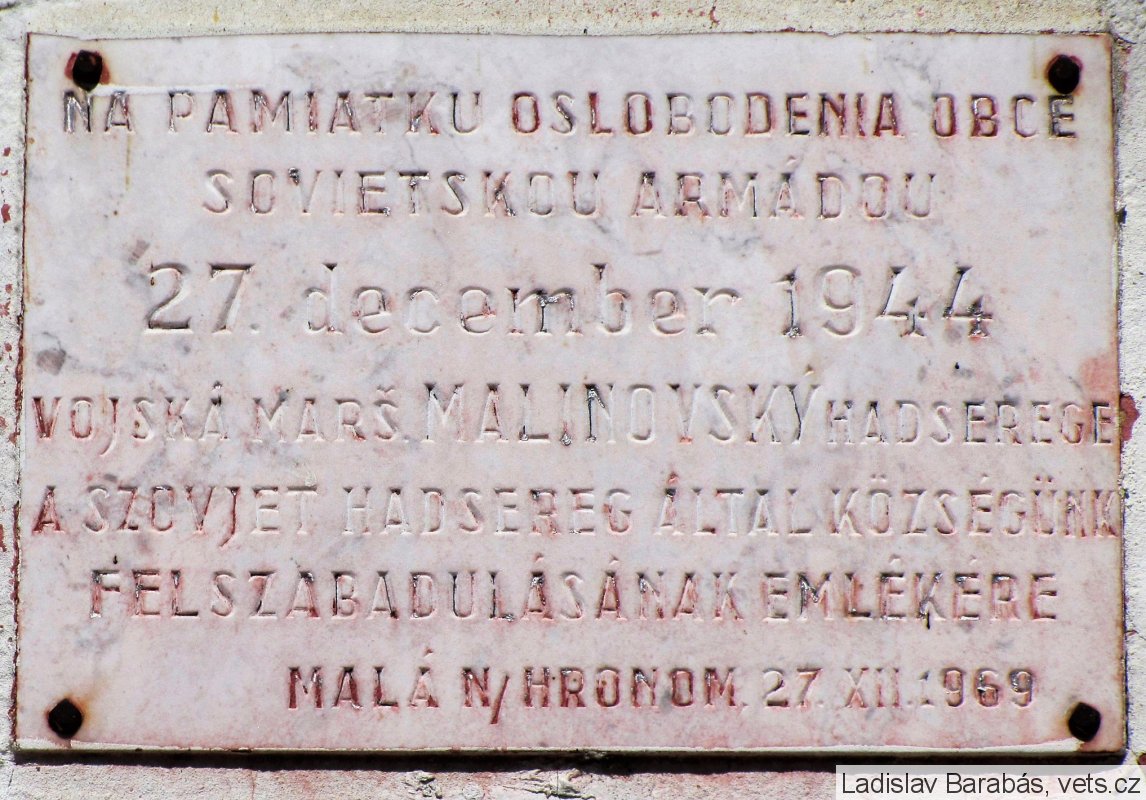 NA PAMIATKU OSLOBODENIA OBCE
SOVIETSKOU ARMÁDOU
27. december 1944
VOJSKÁ MARŠ. MALINOVSKÝ HADSEREGE
A SZOVJET HADSEREG ÁLTAL KÖZSÉGÜNK
FELSZABADULÁSÁNAK EMLÉKÉRE
MALÁ N/HRONOM. 27. XII. 1969
Ladislav Barabás, vets.cz